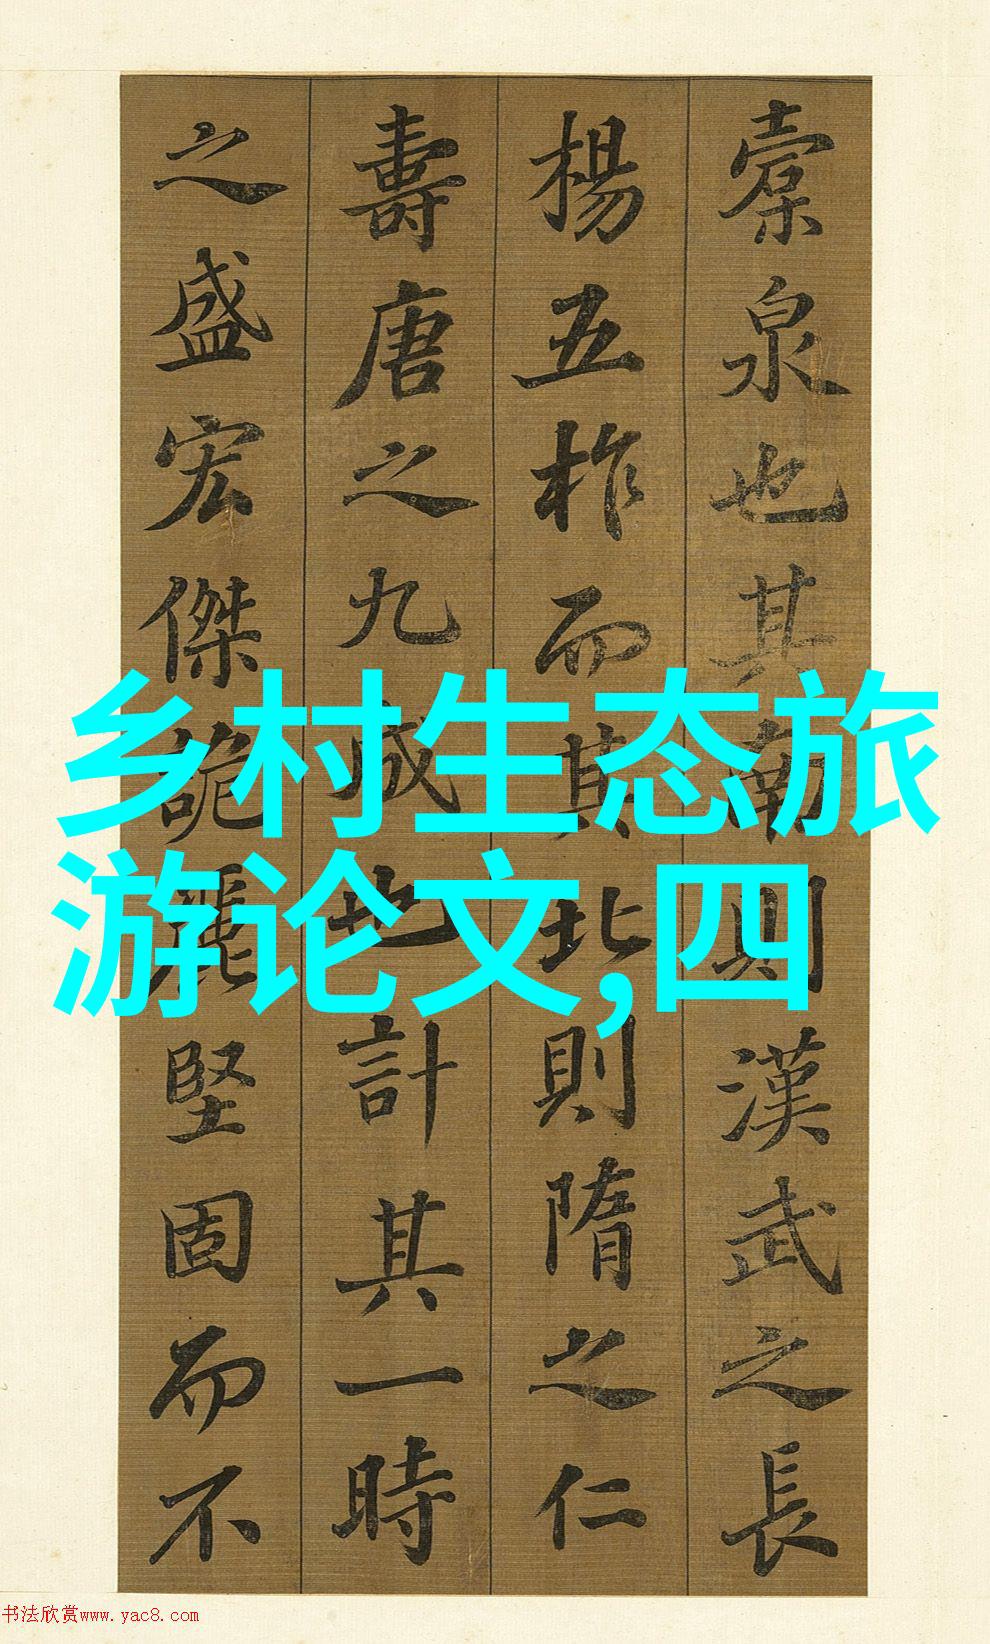 橐泉也其南則漢武之長
楊五柞而其北則隋之仁
壽唐之九成也計其一時
之盛宏傑詭麗堅固而不
乡村生态旅
游论文,四
书法欣赏www.yac8.com